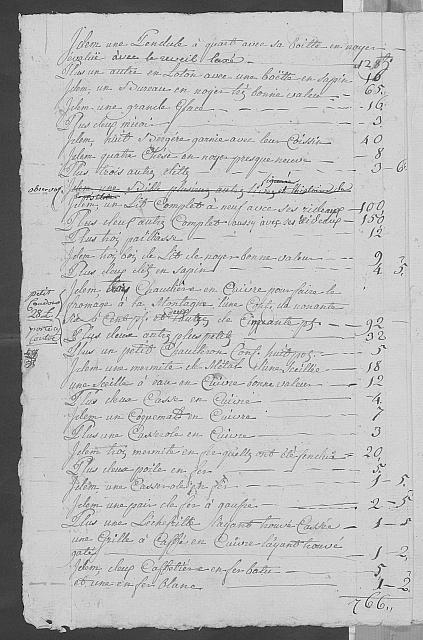 Jdem une Pendule à quart avec sa boitte en noyer
evaluë avec le reveil 128
Plus un autre en Loton avec une boëtte en sapin 16
Jdem, un Bureau en noyer bonne valeur 65
Jdem une grande Glace 16
Plus deux miroir 3
Jdem, huit Bergere garnie avec leur Cossin 40
Jdem quatre Chese en noyer presque neuve 8
Plus trois autre 3 - 6
Jdem une vieille plusieurs autres livres et histoires
Jdem un Lit Complet à neuf avec ses rideaux 100
Plus deux autre Complet aussy avec ses Rideaux 150
Plus troy paillasse 12
Jdem troy boi de Lit de noyer bonne valeur 9 3
Plus deux en sapin 4 5
Jdem Chaudiers en Cuivre pour faire le
fromage à la Montagne l'une Cont. de nonante
petit
Chaudron
28 L
de Cinquante 92
Plus deux autre plus petits 32
Plus un petit Chaudron Cont. huit 5
Jdem une mermite de Métal 18
une Seille à eau en Cuivre bonne valeur 12
Plus deux Casse en Cuivre 4
Jdem un Coquemard en Cuivre 7
Plus une Casserole en Cuivre 3
Jdem troy mermite en fer quelles ont été fenduë 20
Plus deux poile en fer 5
Jdem une Casserole en fer 1 - 5
Jdem une pair de fer à gaufre 2 - 5
Plus une Lechefrite layant trouvé Cassée 1 - 5
une Grille à Caffé en Cuivre layant trouvé
gatée 1 - 2
Jdem, deux Caffetiere en fer batu 5
et une en fer Blanc 1 - 2
766